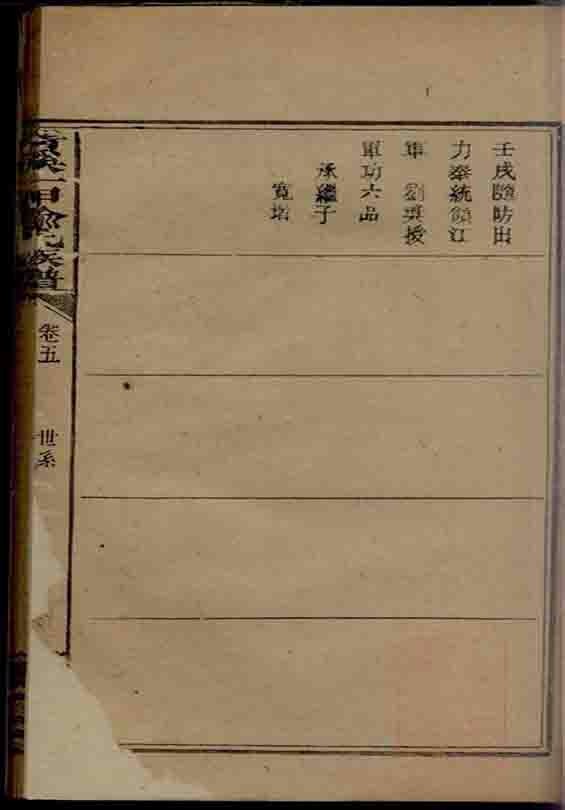 壬戌隨防出
力奉統領江
軍 劉奬授
軍功六品
承繼子
寬
一甲 氏族譜
卷五
世系